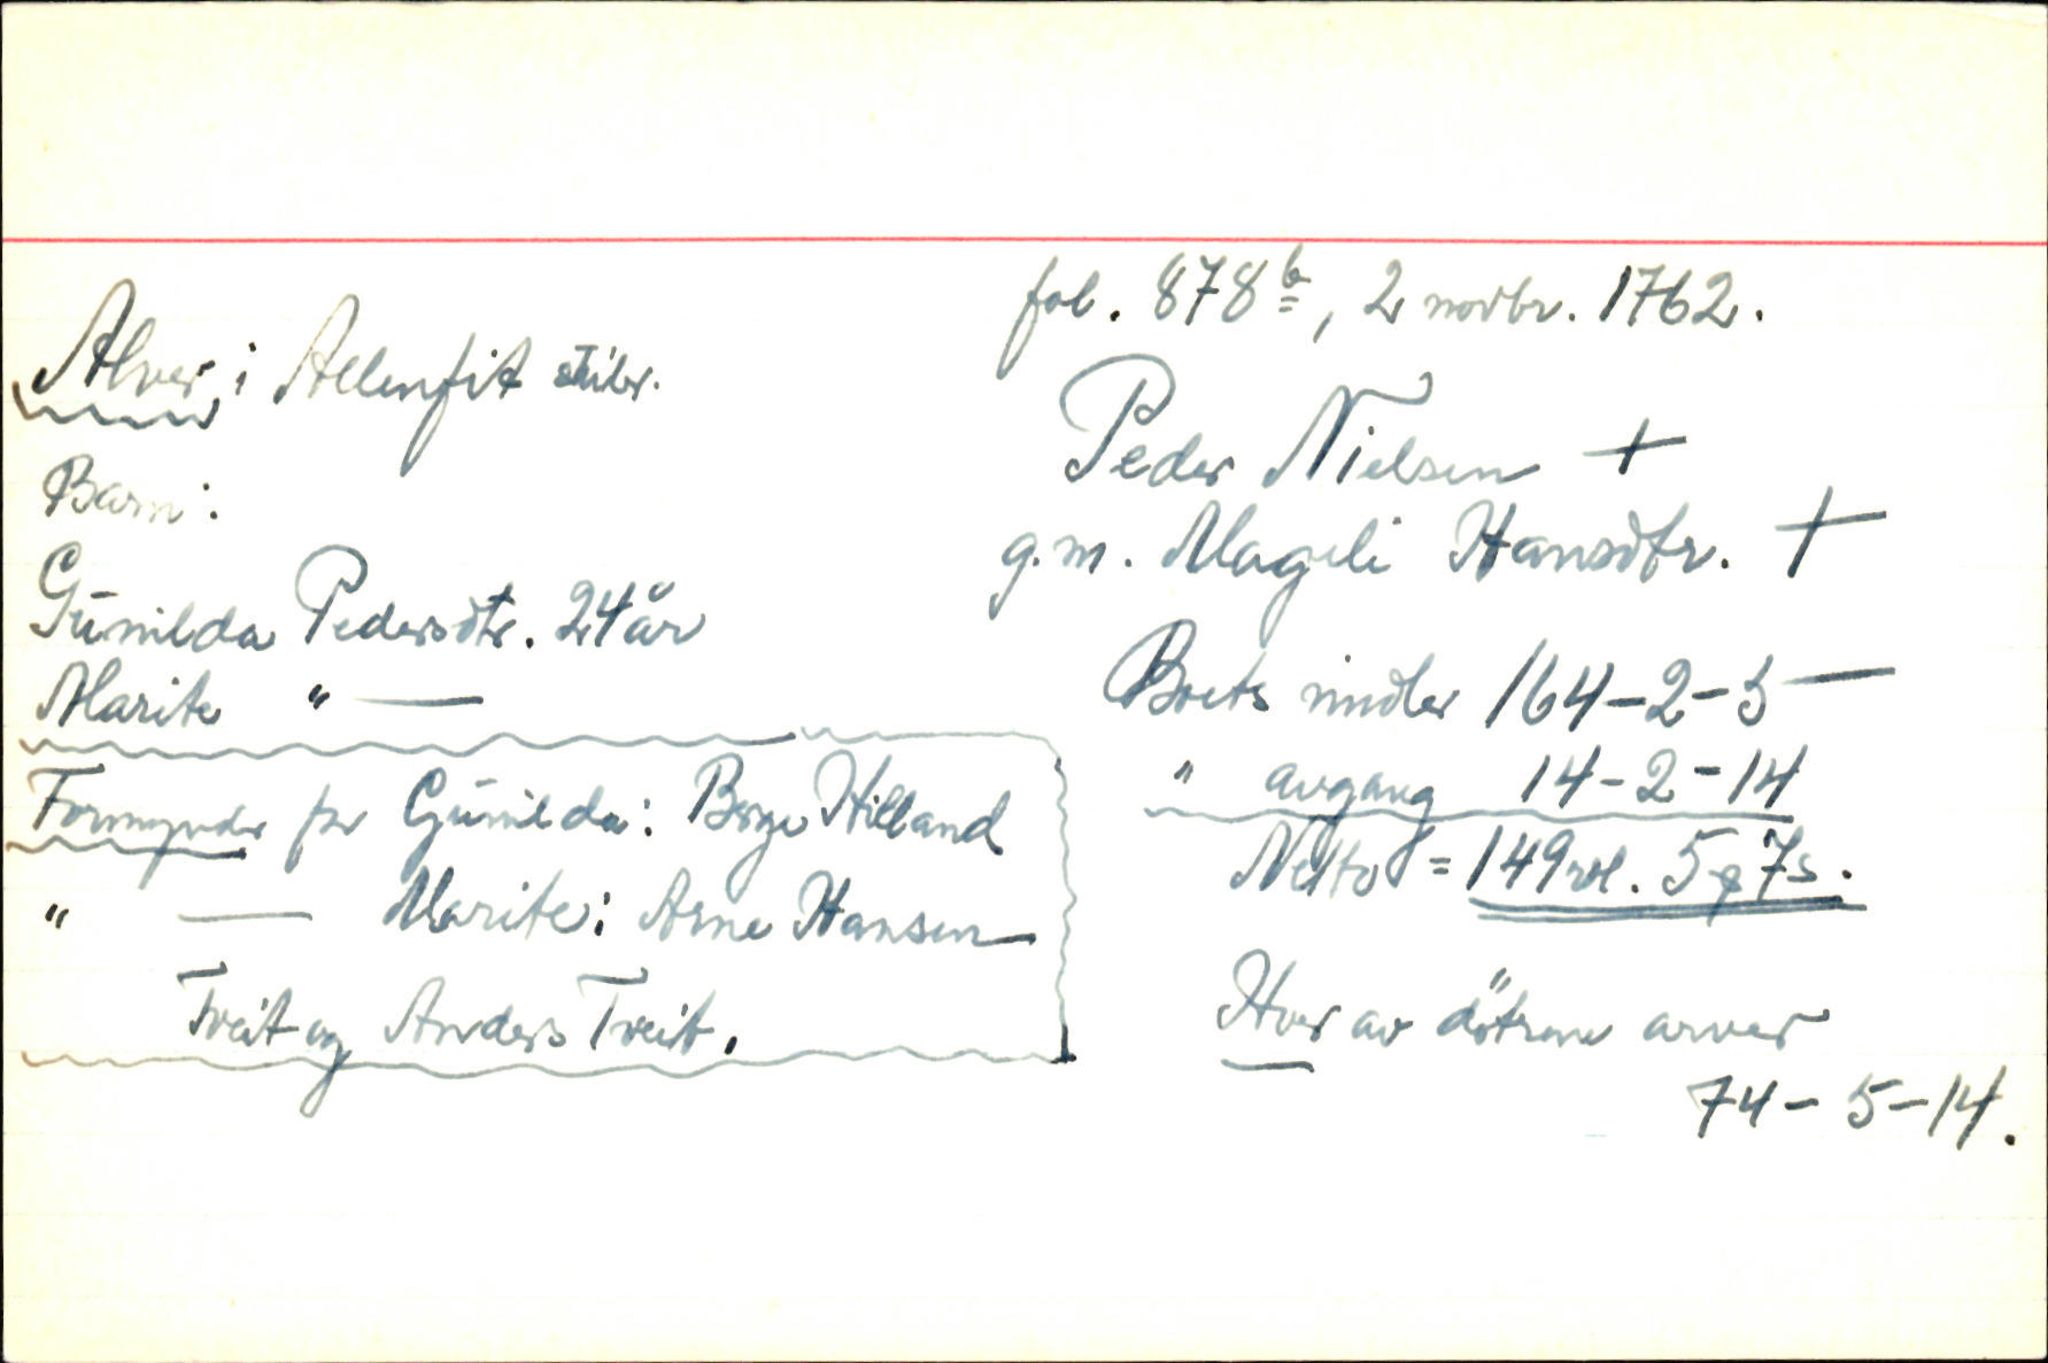 fol. 878b, 2 novbr. 1762.
Alver i Allenfit skibr.
Peder Nielsen +
g.m. Mageli Hansdtr. +
Barn:
Gunilda Pedersdtr. 24 år
Marite " —
Boets midler 164-2-5 —
" avgang 14-2-14
Netto = 149 rdl. 5 ƍ 7 s.
Formynder for Gunilda: Børge Hilland
" — Marite: Arne Hansen
Tveit og Anders Tveit.
Hver av dötrene arver
74-5-14.